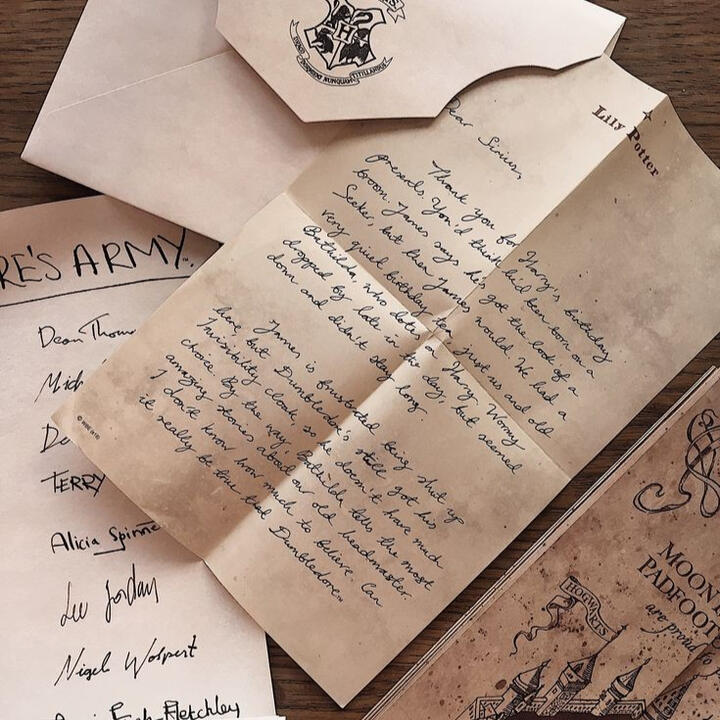 DRACO DORMIENS NUNQUAM TITILLANDUS
H
Lily Potter
Dear Sirius,
Thank you for Harry's birthday
presents. You'd think had been born on a
broom. James says he's got the look of a
Seeker, but then James would. We had a
very quied birthday tea, just us and old
Bathilda, who dotes on Harry. Wormy
dropped by late in the day, but seemed
down and didn't stay long.
James is frustrated being shut up
here, but Dumbledore's still got his
Invisibility cloack so he doesn't have much
choice. By the way, Bathilda tells the most
amazing stories about our old headmaster.
I don't know how much to believe. Can
it really be true that Dumbledore™
RE'S ARMY™
Dean Thom
Mich
De
TERRY
Alicia Spinne
Lee Jordan
Nigel Wolpert
Fletchley
MOON
PADFOOT
are proud to
HOGWARTS